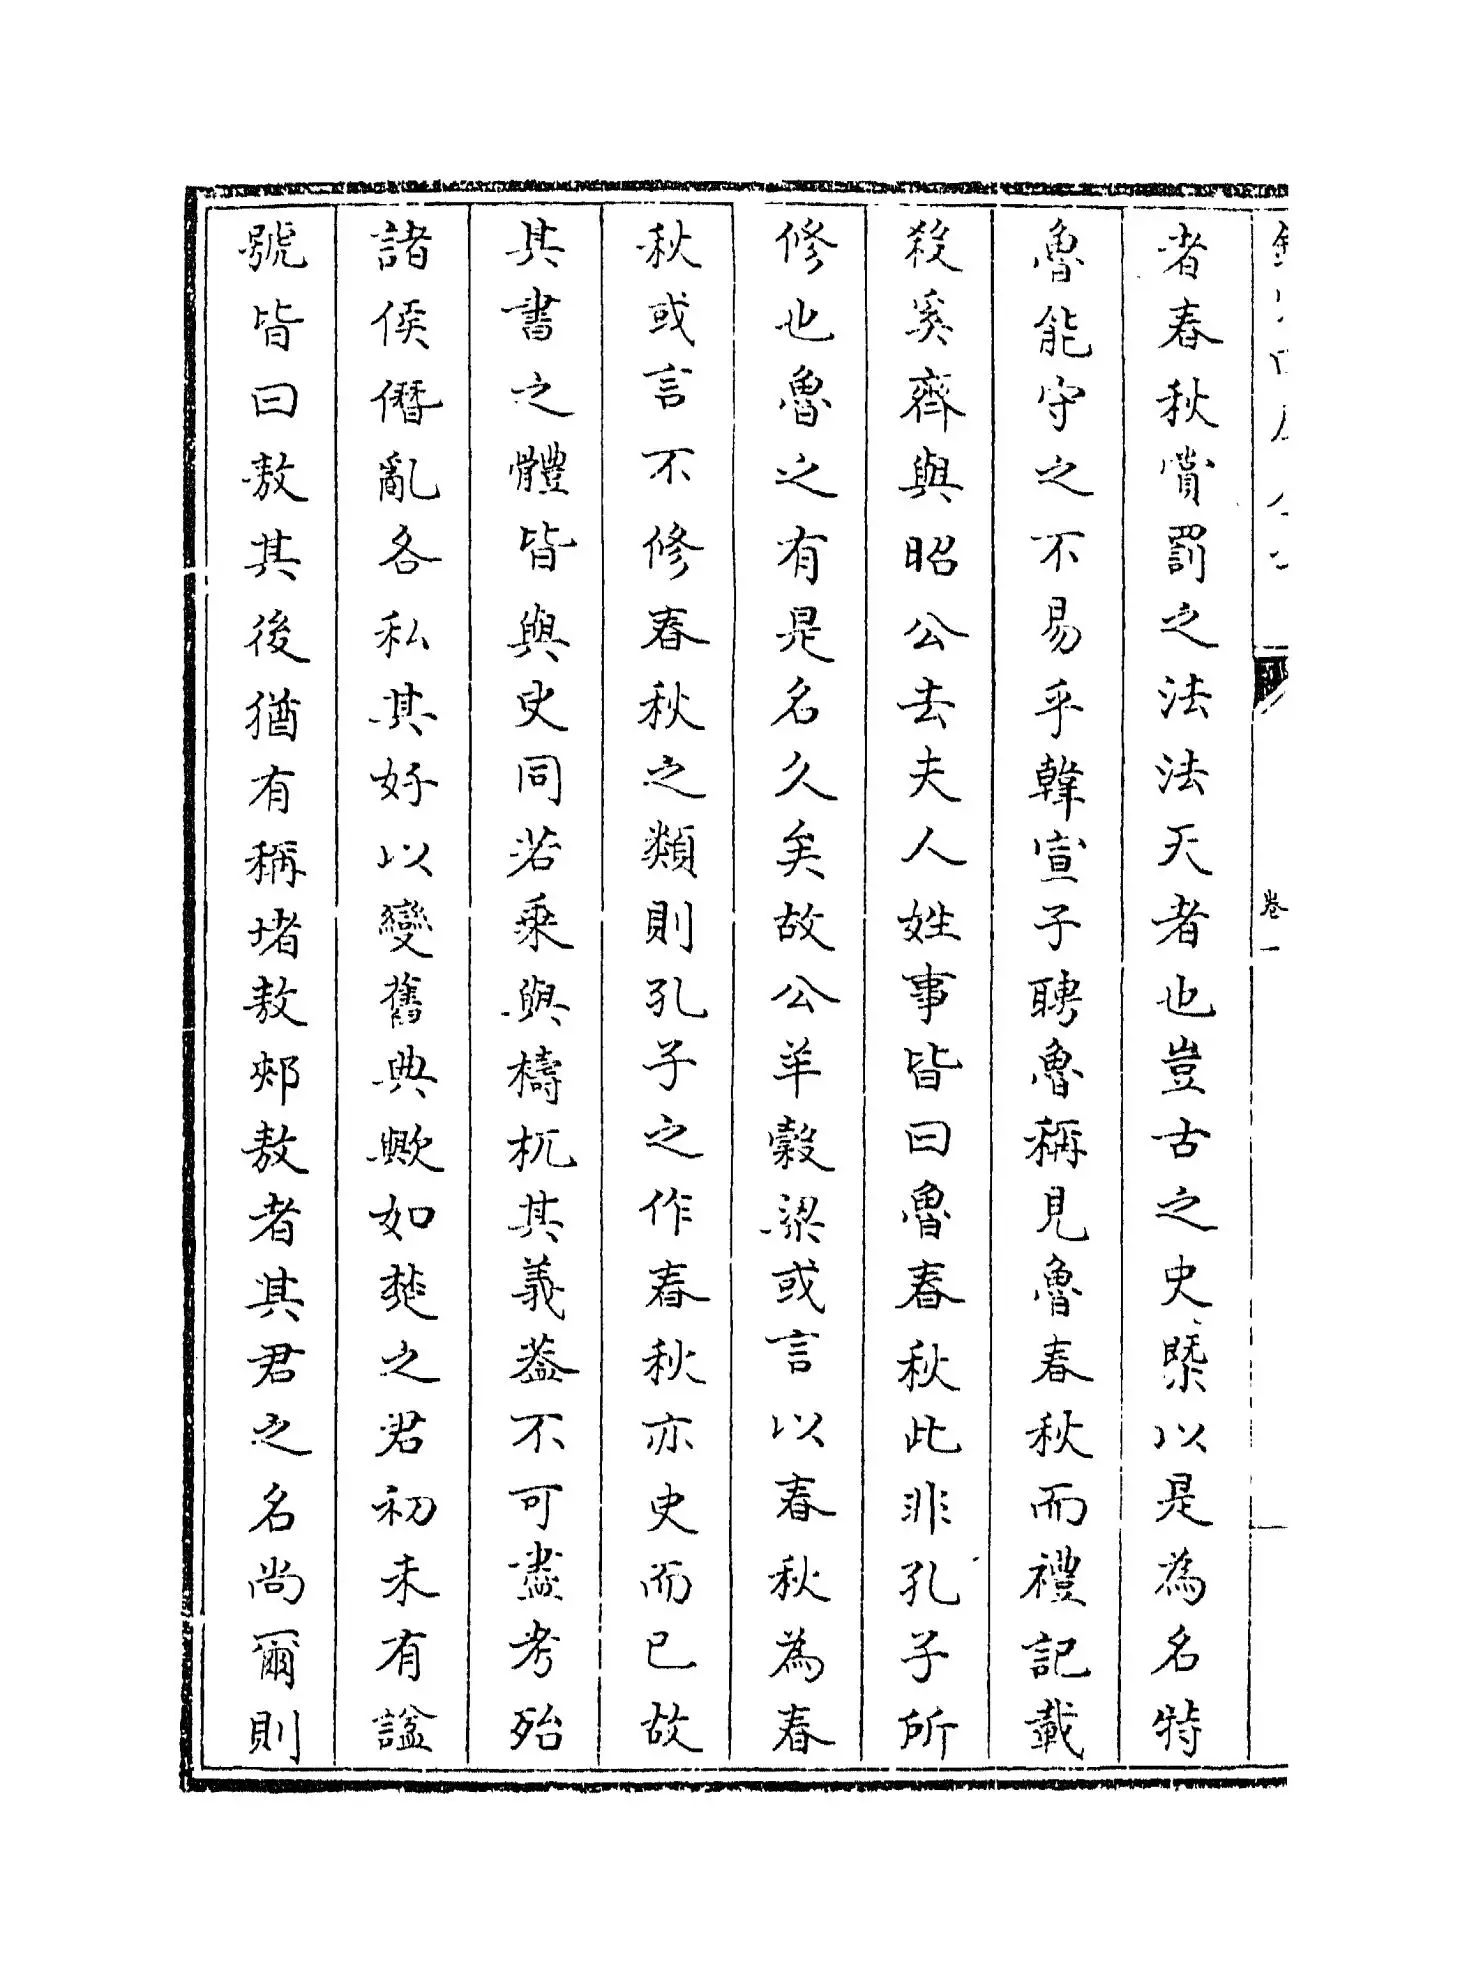 者春秋賞罰之法法天者也豈古之史槩以是為名特
魯能守之不易乎韓宣子聘魯稱見魯春秋而禮記載
殺奚齊與昭公去夫人姓事皆曰魯春秋此非孔子所
修也魯之有是名久矣故公羊穀梁或言以春秋為春
秋或言不修春秋之類則孔子之作春秋亦史而已故
其書之體皆與史同若乘與檮杌其義葢不可盡考殆
諸侯僭亂各私其好以變舊典歟如楚之君初未有諡
號皆曰敖其後猶有稱堵敖郟敖者其君之名尚爾則
卷一